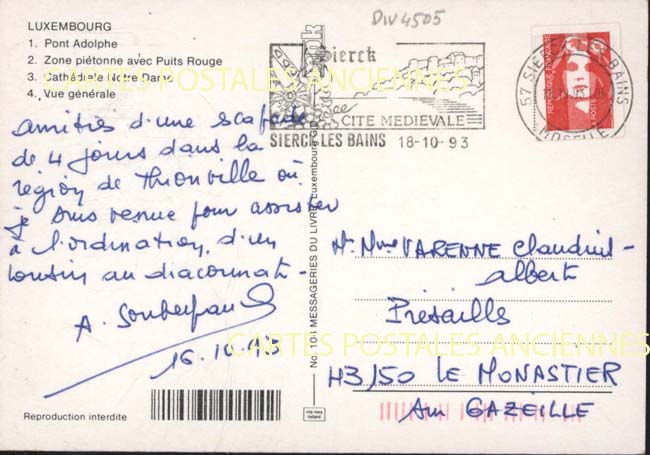 DIV4505
LUXEMBOURG
1. Pont Adolphe
2. Zone piétonne avec Puits Rouge
3. Cathédrale Notre Dame
4. Vue générale
Sierck
CITE MEDIEVALE
SIERCK LES BAINS 18-10-93
57 SIERCK LES BAINS
MOSELLE
REPUBLIQUE FRANCAISE
LA POSTE
CARTES POSTALES ANCIENNES
amitiés d'une escapade
de 4 jours dans la
région de Thionville où
je suis venue pour assister
à l'ordination, d'un
cousin au diaconnat -
A.
16.10.93
Mr Mme VARENNE Claudius-
Albert
Présailles
43150 LE MONASTIER
sur GAZEILLE
No. 10-I MESSAGERIES DU LIVRE, Luxembourg
CARTES POSTALES ANCIENNES
Reproduction interdite